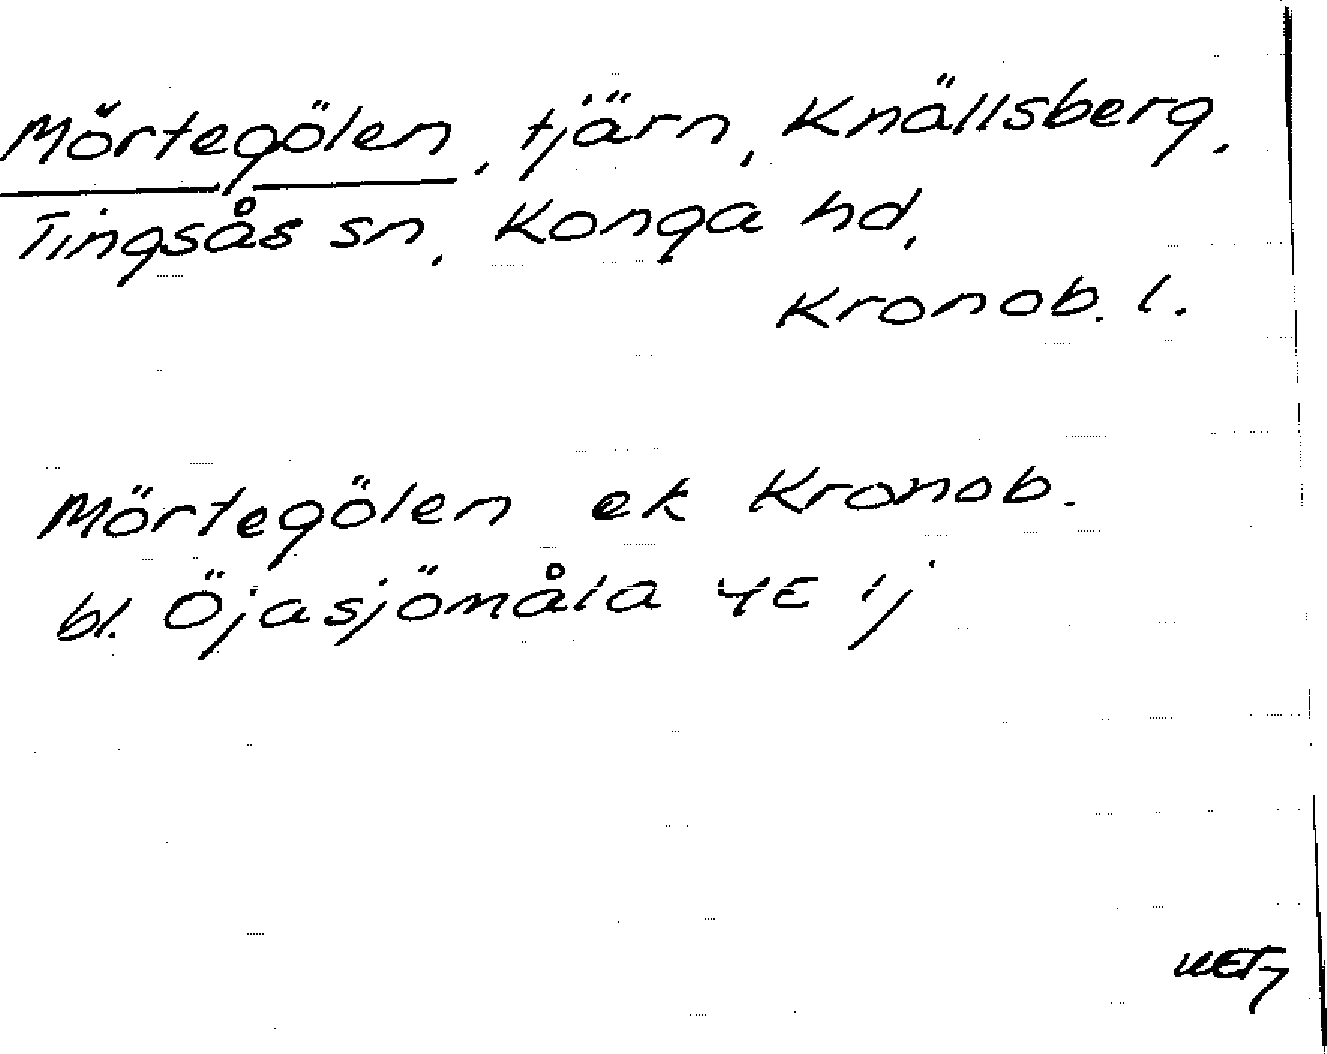 Mörtegölen, tjärn, Knällsberg,
Tingsås sn, Konga hd,
Kronob. l.
Mörtegölen ek Kronob.
bl. Öjasjömåla 4E ij